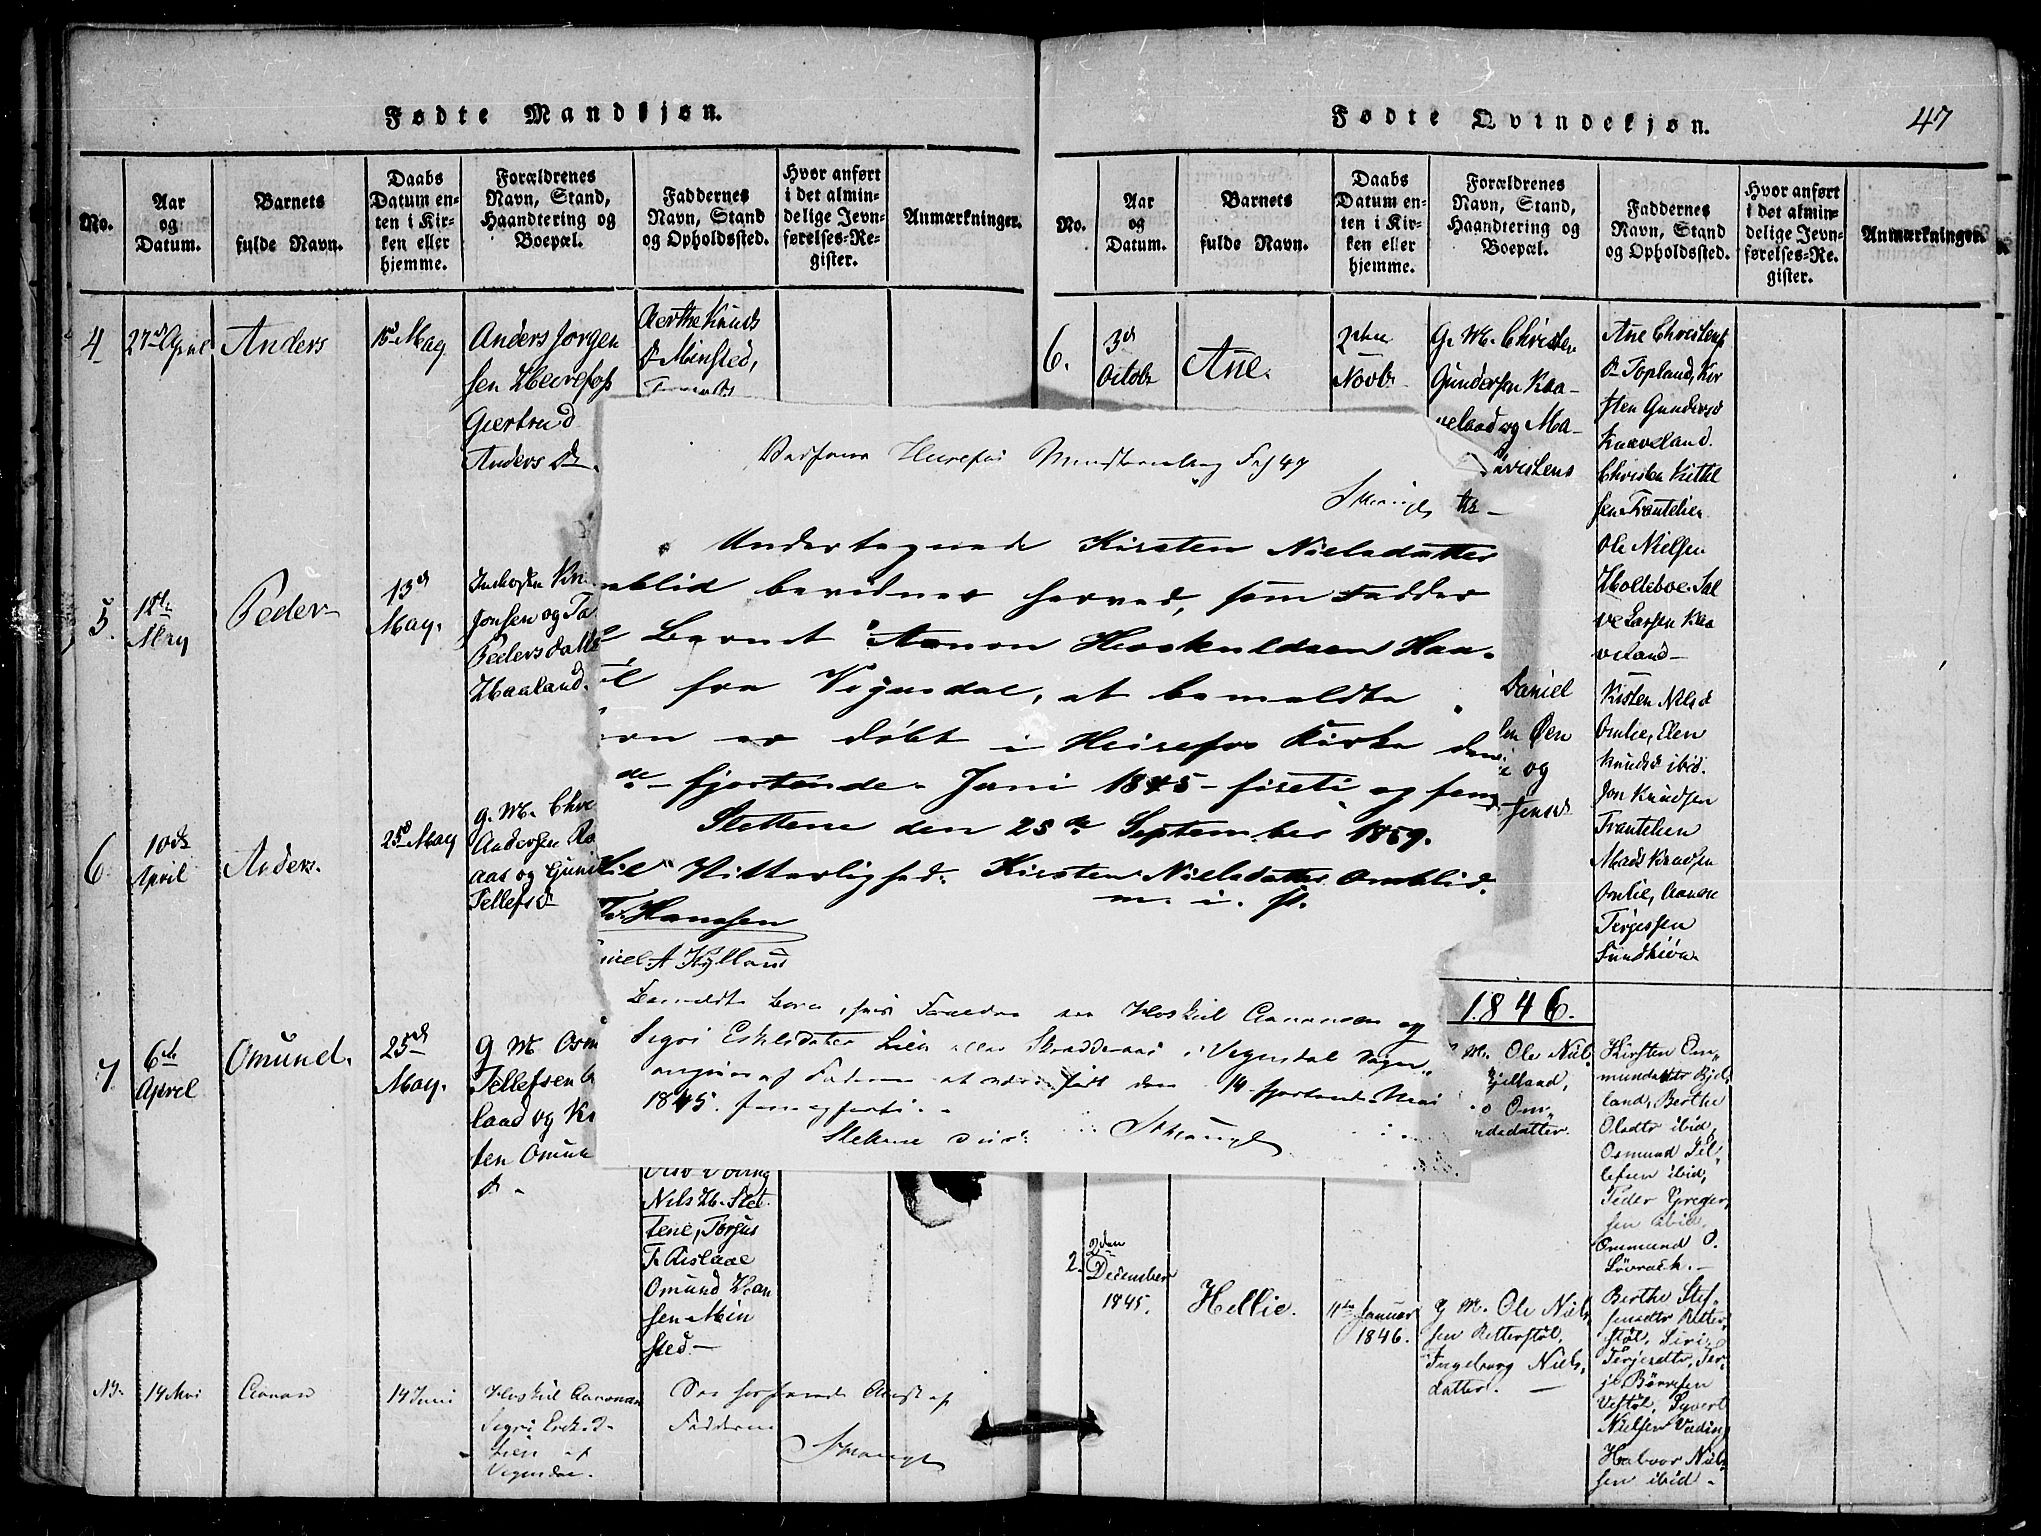 Fødte Mandkjøn.
No.
Aar
og
Datum.
Barnets
fulde Navn.
Daabs
Datum en-
ten i Kir-
ken eller
hjemme.
Forældrenes
Navn, Stand,
Haandtering og
Boepæl.
Faddernes
Navn, Stand
og Opholdssted.
Hvor anført
i det almin-
delige Jevn-
førelses-Re-
gister.
Anmærkninger.
4
27d April
Anders
15d May
Anders Jorgen
sen Heirefos
Giertrud
Anders Dr
Berthe Knuds
Dr Minsted,
5.
12te
May
Peder
13d
May.
Jonsen og
Peders datter
Haaland.
6
10de
April
Anders.
25d May
G. M. Chr
Andersen
aas og Guni
Tellefsd
7
6te
April
Omund.
25d
May.
G M Osm
Tellefsen
laad og Ki
sten Omun
Nels H. Slet
tene, Torjus
T. Rislaae
Omund Han
sen Min
sted.
14 Mai
Aanon
14 Juni
Hoskul Aanonsen
Segri
Lien
Vegusdal.
Faddere
Fødte Qvindekjøn.
47
No.
Aar
og
Datum.
Barnets
fulde Navn.
Daabs
Datum en-
ten i Kir-
ken eller
hjemme.
Forældrenes
Navn, Stand,
Haandtering og
Boepæl.
Faddernes
Navn, Stand
og Opholdssted.
Hvor anført
i det almin-
delige Jevn-
førelses-Re-
gister.
Anmærkninger.
6.
3d
Octob
Ane.
2den
Novb
G. M. Christen
Gundersen Kaa-
velaad og Ma-
Christens
Ane Christens
Dr Topland, Kir
sten Gundersd
Knaveland.
Christen Kittel
sen Trontelien
Ole Nielsen
Holleboe Sal
ve Larsen Kaa
veland
Daniel
og
Jensd
Kisten Nelsd
Omlie, Elen
Knudsd ibid.
Jon Knudsen
Trontelien
Mads Knudsen
Omlie, Aanon
Terjessen
1846.
M. Ole Niel
Kjelland,
Om
dsdatter.
Kirsten Om-
mundsdatter Kjel-
land, Berthe
Olsdtr ibid,
Osmund Tel-
lefsen ibid,
Peder Greger-
sen ibid,
Ommund O.
2.
2den
December
1845.
Hellie.
11te Januar
1846.
G M. Ole Niel-
sen Retterstøl,
Ingeborg Niels-
datter.
Berthe Stef-
fensdtr Retter-
støl, Siri
Terjesdtr, Ter-
je Børresen
Vestøl, Syvert
Nielsen Vading
Halvor Niel-
sen ibid
Heirefos Ministerialbog Fol 47
Undertegnede Kirsten Nielsdatter
Omblid bevidner herved, som Fadder
Barnet Aanon Heiskuldsen Haa-
fra Vegusdal, at bemeldte
er døbt i Heirefos Kirke den
de fjortende Juni 1845 firti og fem
Slettene den 25de September 1859.
til Vitterlighed: Kirsten Nielsdatter Omblid.
m. i. P.
T. Hansen
A Kylland
Bemeldte Barn, hvis Forældre var Hoskul Aanonsen og
Segri Eskelsdatter Lien eller i Vegusdal
Faderen at være født den 14 fjortende Mai
1845. fem og firti.
Slettene